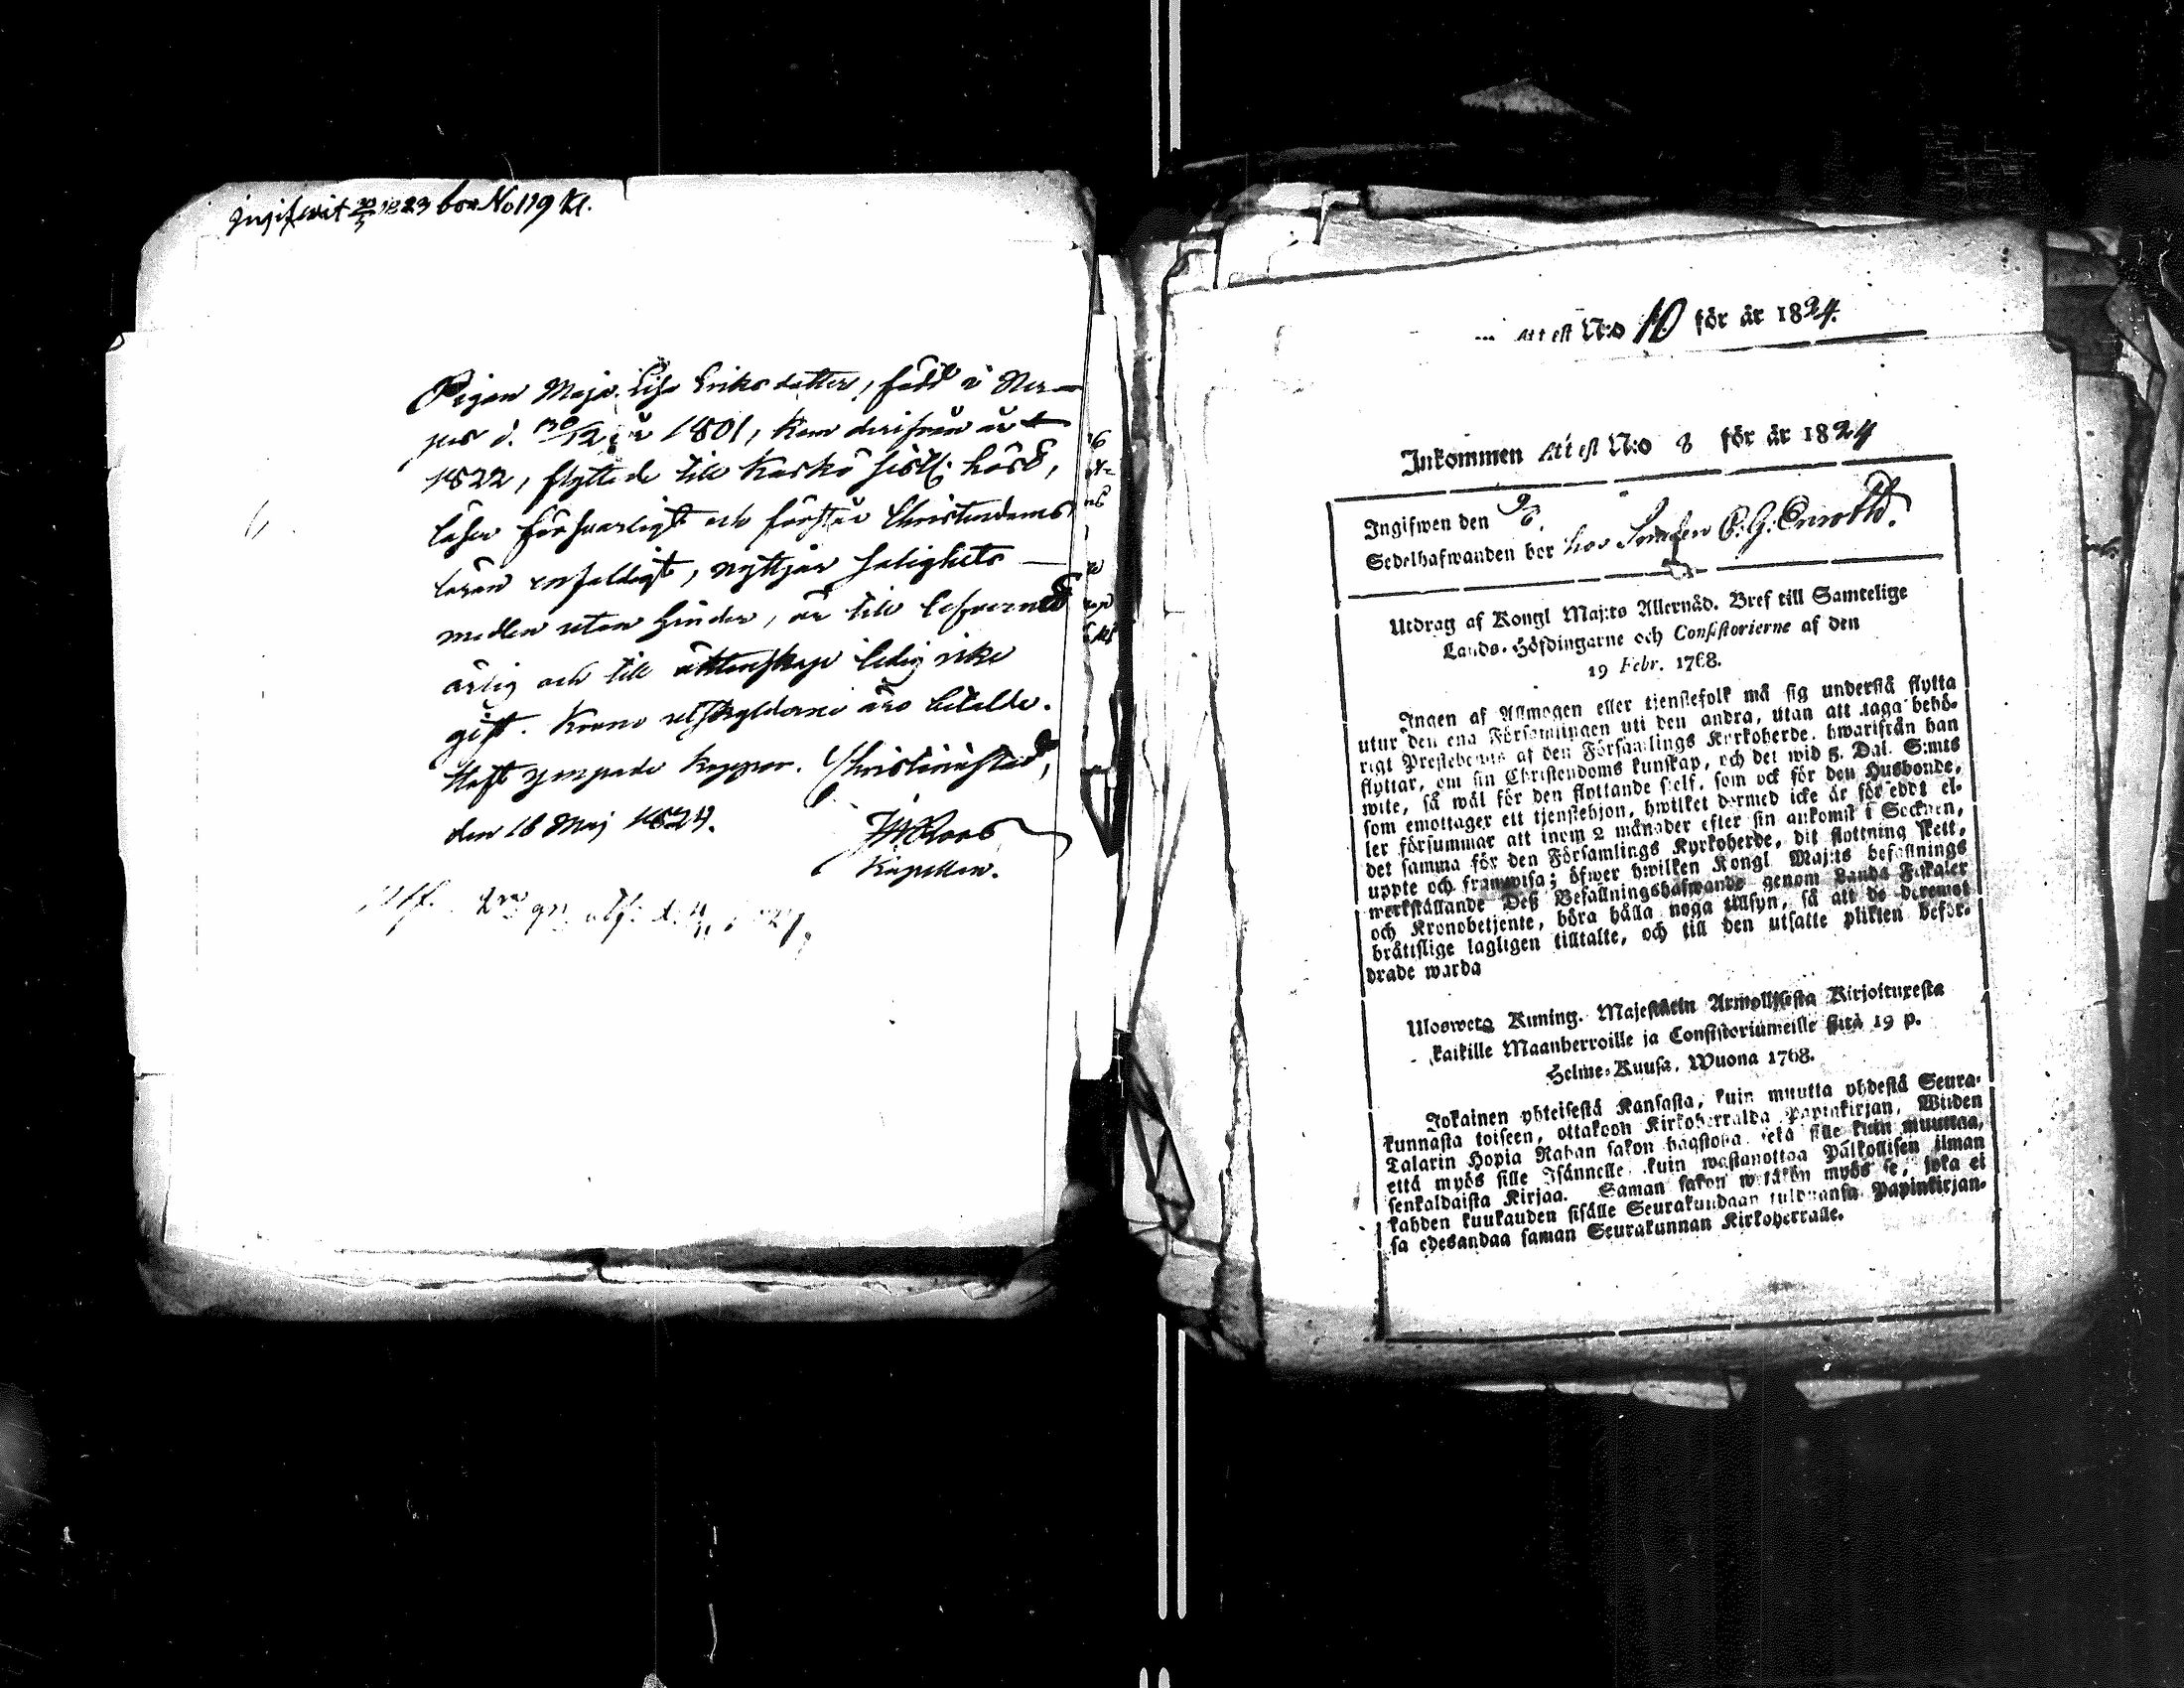 Ingifwit 30/5 1823 bor No 119 kl.
Pigan Maja Lisa Eriksdotter, född i Ner-
pes d. 30/12 år 1801, kom derifrån år
1822, flyttade till Kaskö sistl. höst,
läser försvarligt och förstår Christendoms
läran enfaldigt, nyttjar salighets
medlen utan hinder, är till lefvernet
ärlig och till äktenskap ledig icke
gift. Krono utskylderne äro betalde.
Haft ympade koppor. Christinestad,
den 18 Maj 1824.
Kapellan.
Attest N:o 10 för år 1824.
Inkommen Attest N:o 8 för år 1824
Ingifwen den 9/6.
Sedelhafwanden bor hos Smeden C. G. Enwald.
Utdrag af Kongl Maj:ts Allernåd. Bref till Samtelige
Lands-Höfdingarne och Consistorierne af den
19 Febr. 1768.
Ingen af Allmogen eller tjenstefolk må sig understå flytta
utur den ena Församlingen uti den andra, utan att taga behö-
rigt Prestebewis af den Församlings Kyrkoherde, hwarifrån han
flyttar, om sin Christendoms kunskap, och det wid 5. Dal. S:mts
wite, så wäl för den flyttande sielf, som ock för den Husbonde,
som emottager ett tjenstehjon, hwilket dermed icke är försedt el-
ler försummar att inom 2 månader efter sin ankomst i Socknen,
det samma för den Församlings Kyrkoherde, dit flyttning skett,
uppte och framwisa; öfwer hwilken Kongl Maj:ts befallnings
werkställande Deß Befallningshafwande genom Lands Fiskaler
och Kronobetjente, böra hålla noga tillsyn, så att de deremot
bråttslige lagligen tilltalte, och till den utsatte plikten befor-
drade warda
Uloswetg Kuning. Majestätin Armollisesta Kirjoituxesta
kaikille Maanherroille ja Consistoriumeille siitä 19 p.
Helme-Kuusa, Wuona 1768.
Jokainen yhteisestä Kansasta, kuin muutta yhdestä Seura-
kunnasta toiseen, ottakoon Kirkoherralda Papinkirjan, Wiiden
Talarin Hopia Rahan sakon haastolla, sekä sille kuin muuttaa,
että myös sille Isännelle, kuin wastanottaa Palkollisen ilman
senkaldaista Kirjaa. Saman sakon wetäkön myös se, joka ei
kahden kuukauden sisälle Seurakundaan tulduansa Papinkirjan-
sa edesandaa saman Seurakunnan Kirkoherralle.